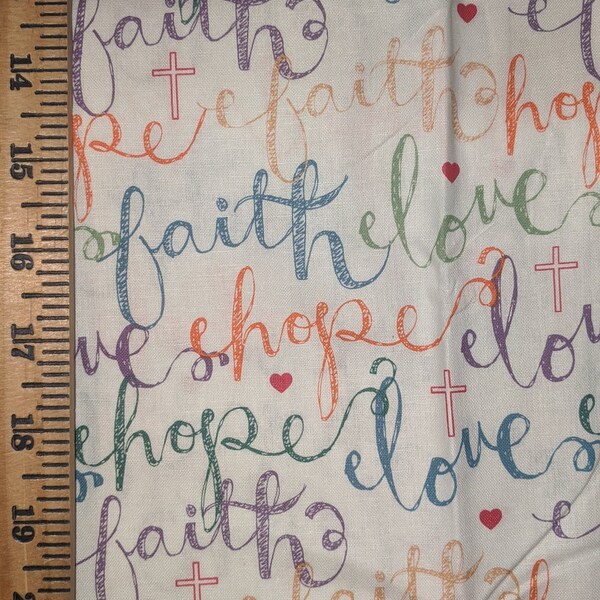 faith
faith
hop
pe
love
faith
hope
love
ove
hope
love
faith
faith
14
15
16
17
18
19